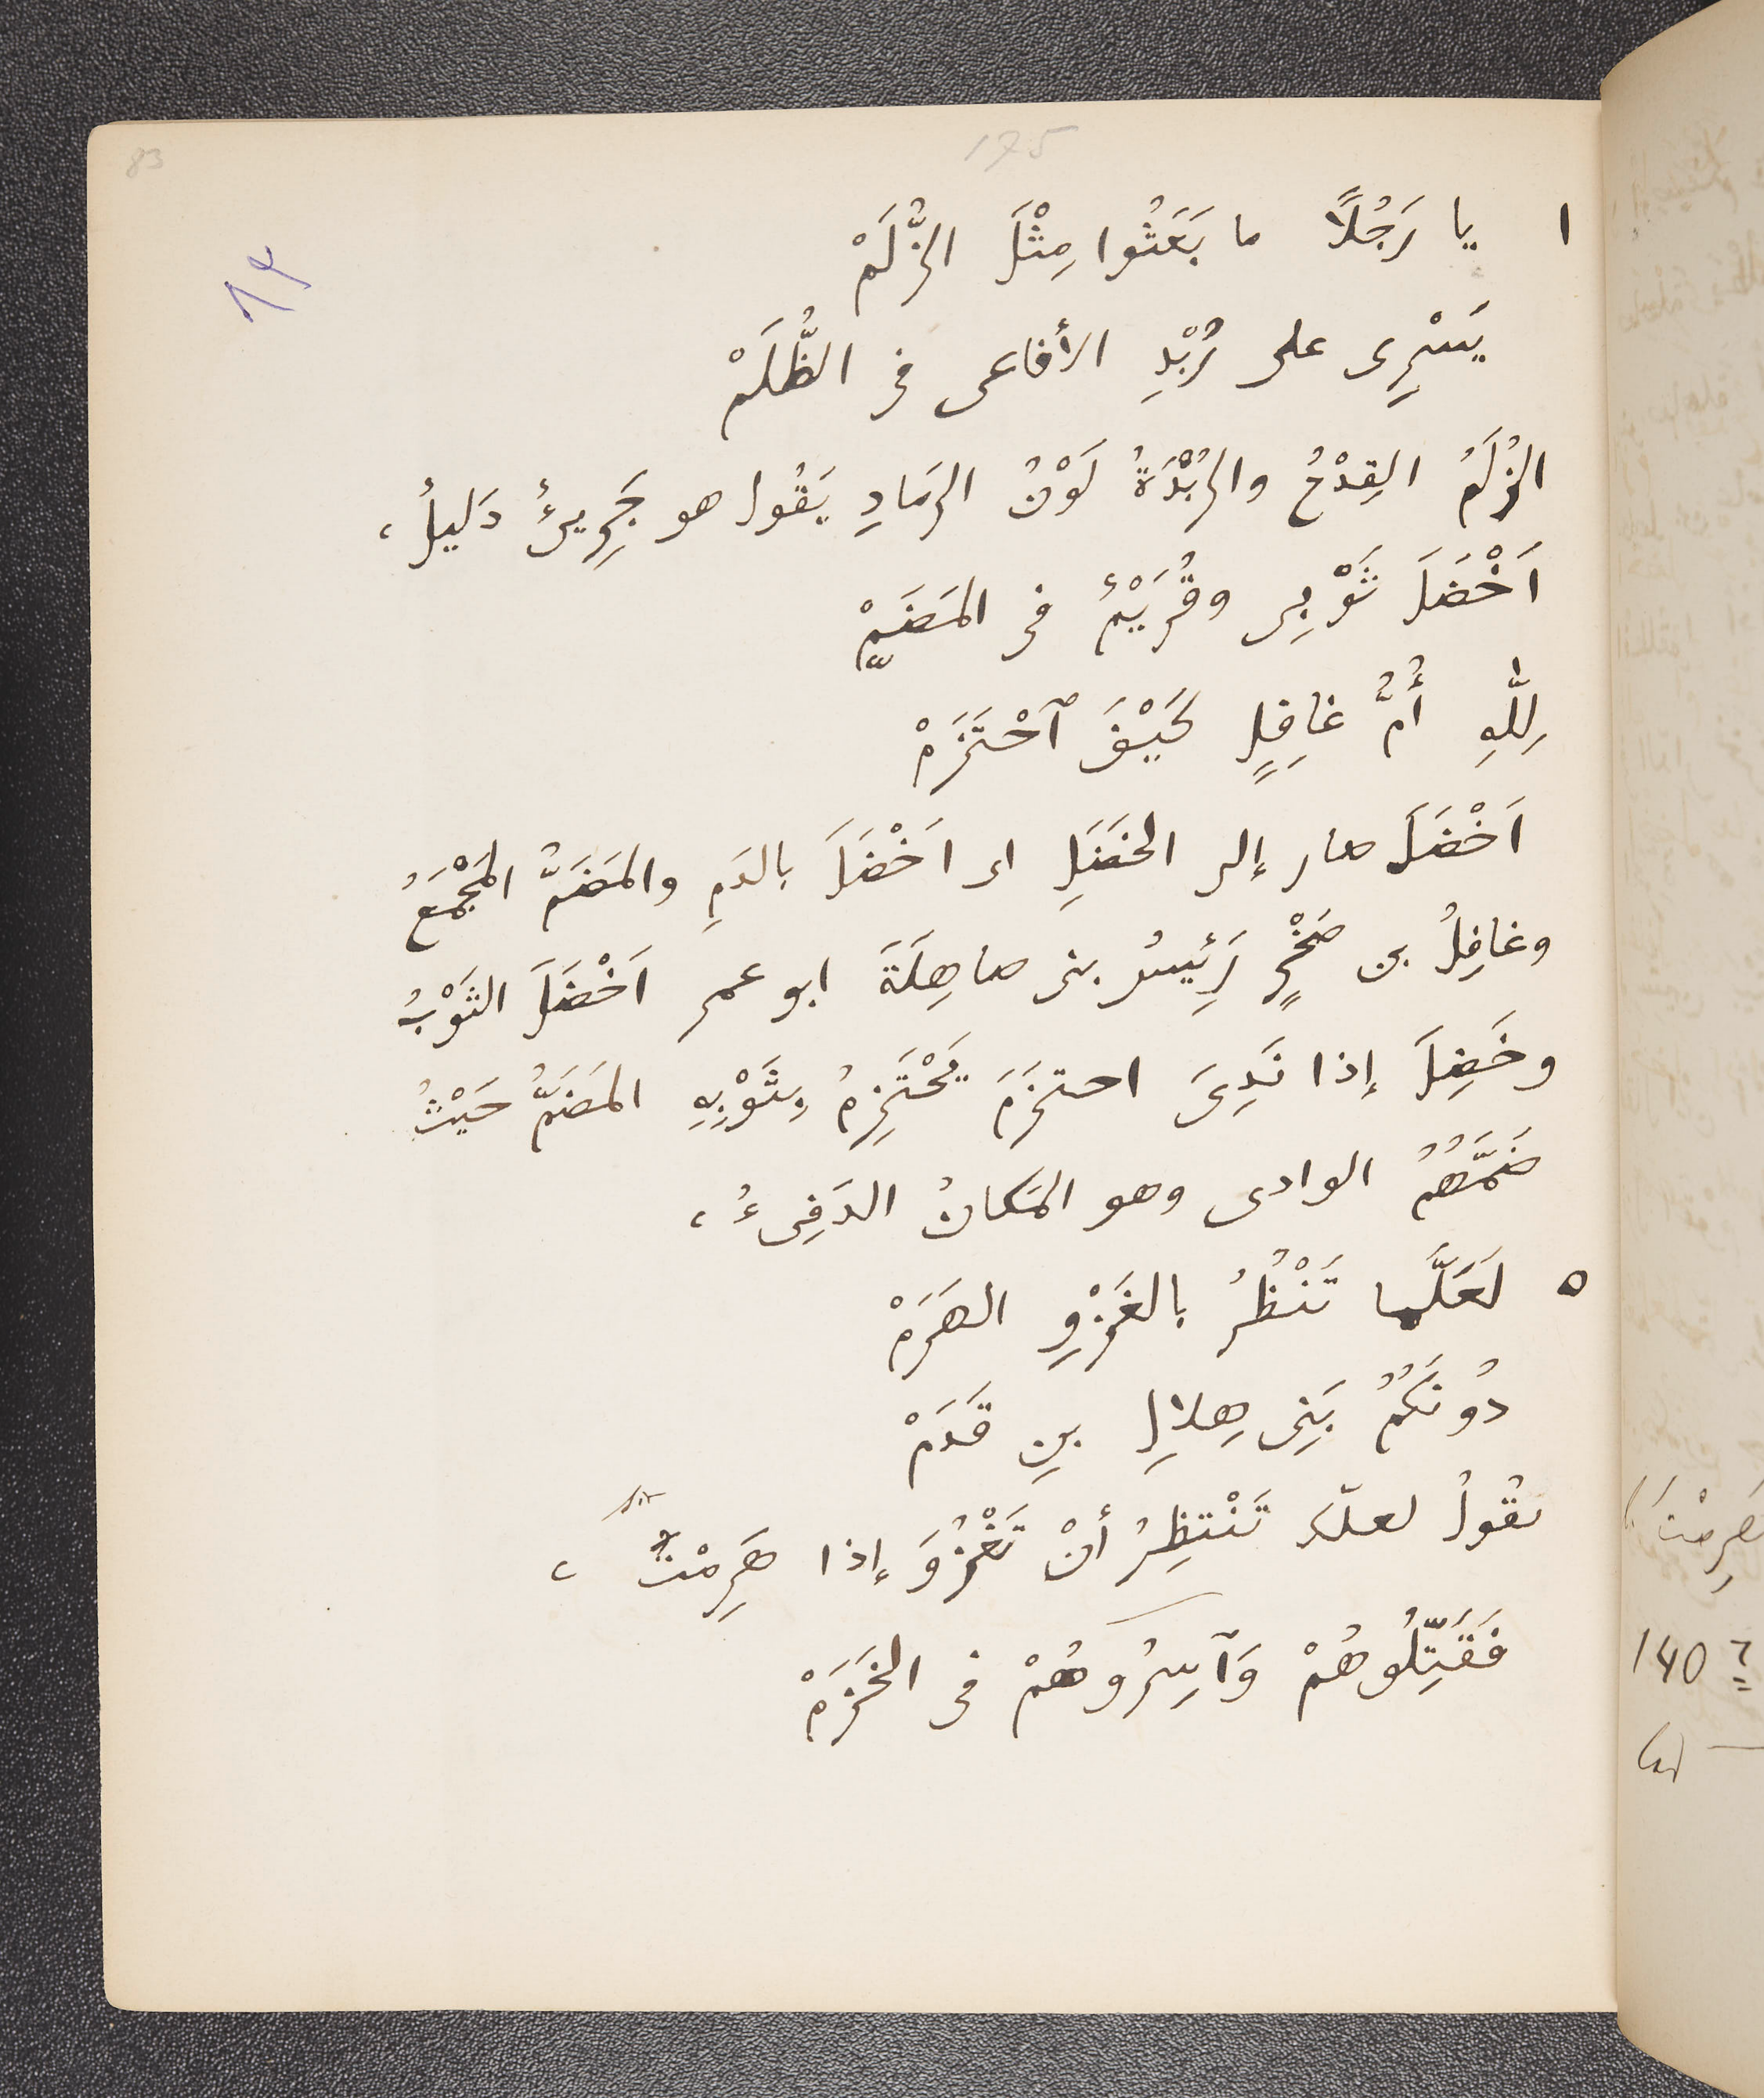 83
175
٨٣
١ يا رَجُلًا ما بَعَثُوا مِثْلَ الزُّلَمْ
يَسْرِى على رُبْدِ الأفاعى فى الظُّلَمْ
الزُلَمُ القِدْحُ والرُبْدَةُ لَوْنُ الرَمادِ يَقُول هو جَرِىءٌ دَليلٌ،
اَخْضَلَ ثَوْبِى وقُرَيْمٌ فى المَضَمّْ
لِلّٰهِ أُمُّ غافِلٍ كَيْفَ ٱحْتَزَمْ
اَخْضَلَ صار إلى الخَضَلِ اى اَخْضَلَ بالدَمِ والمَضَمُّ المَجْمَعُ
وغافِلُ بن صَخْرٍ رَئِيسُ بنى صاهِلَةَ ابو عمر اَخْضَلَ الثَوْبُ
وخَضِلَ إذا نَدِىَ احتزَمَ يَحْتَزِمُ بِثَوْبِهِ المَضَمُّ حَيْثُ
ضَمَّهُمُ الوادى وهو المَكانُ الدَفِىءُ،
٥ لَعَلَّما تَنْظُرُ بالغَزْوِ الهَرَمْ
دُونَكُمُ بَنِى هِلالِ بنِ قَدَمْ
يقُولُ لعلّك تَنْتظِرُ أنْ تَغْزُوَ إذا هَرِمْتَ،
فَقَتِّلُوهُمْ وَآسِرُوهُمْ فى الخَزَمْ
هَرِمْتَ
140